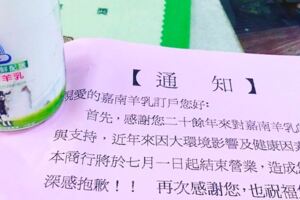 羊乳
【通知】
親愛的嘉南羊乳訂戶您好:
首先,感謝您二十餘年來對嘉南羊乳
與支持,近年來因大環境影響及健康因素
本商行將於七月一日起結束營業,造成您
深感抱歉!! 再次感謝您,也祝福您